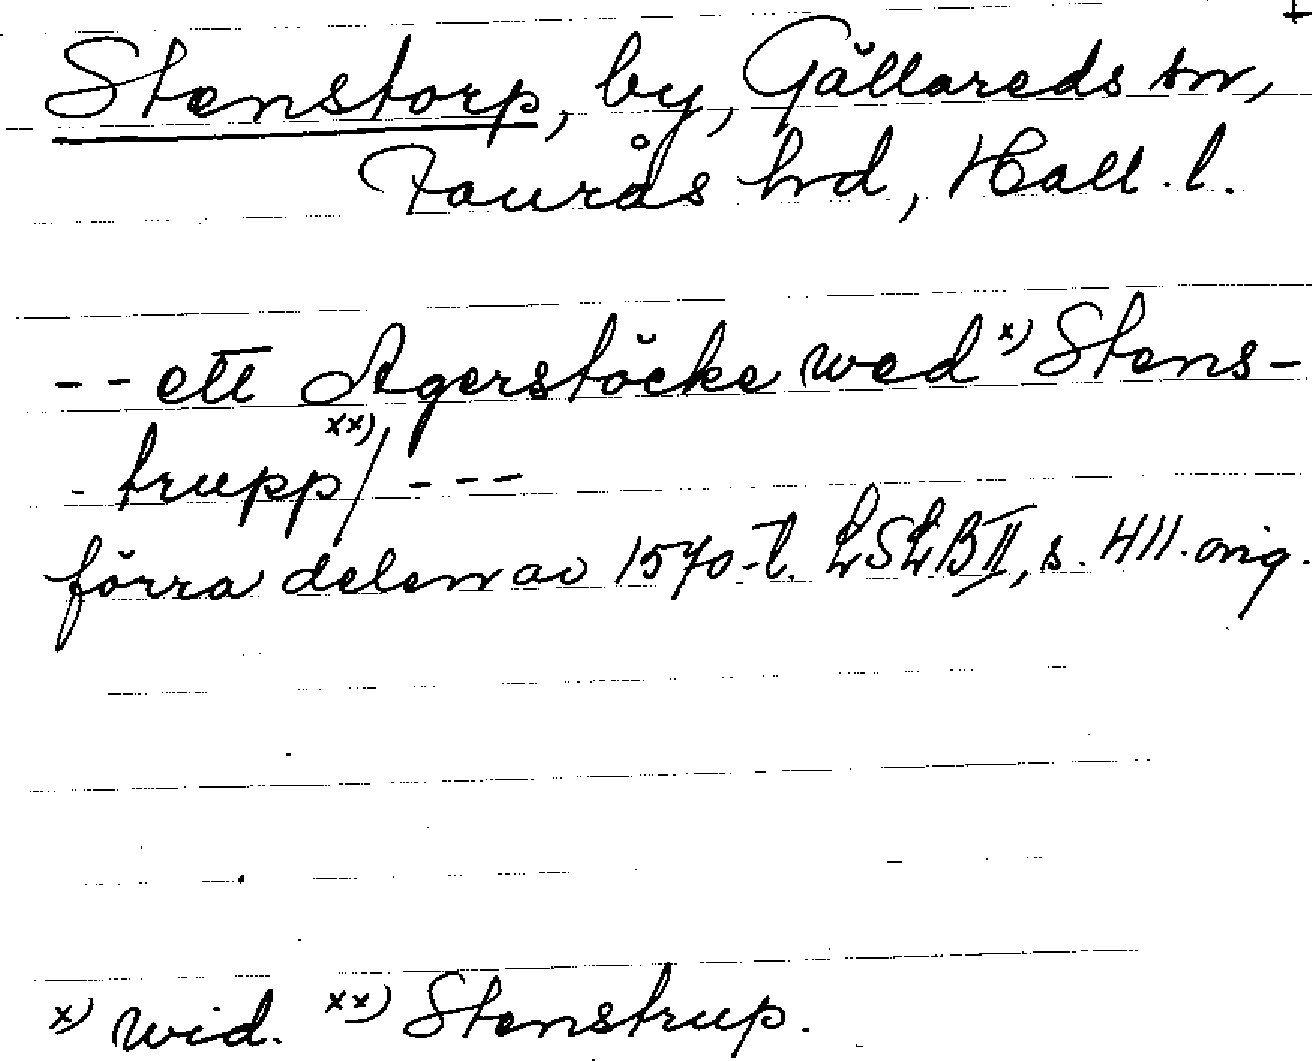 Stenstorp, by, Gällareds sn,
Faurås hrd, Hall. l.
- - ett Agerstöcke wed x) Stens-
trupp xx) / - - -
förra delen av 1570-t. LSLB II, s. 411. orig.
x) wid. xx) Stenstrup.